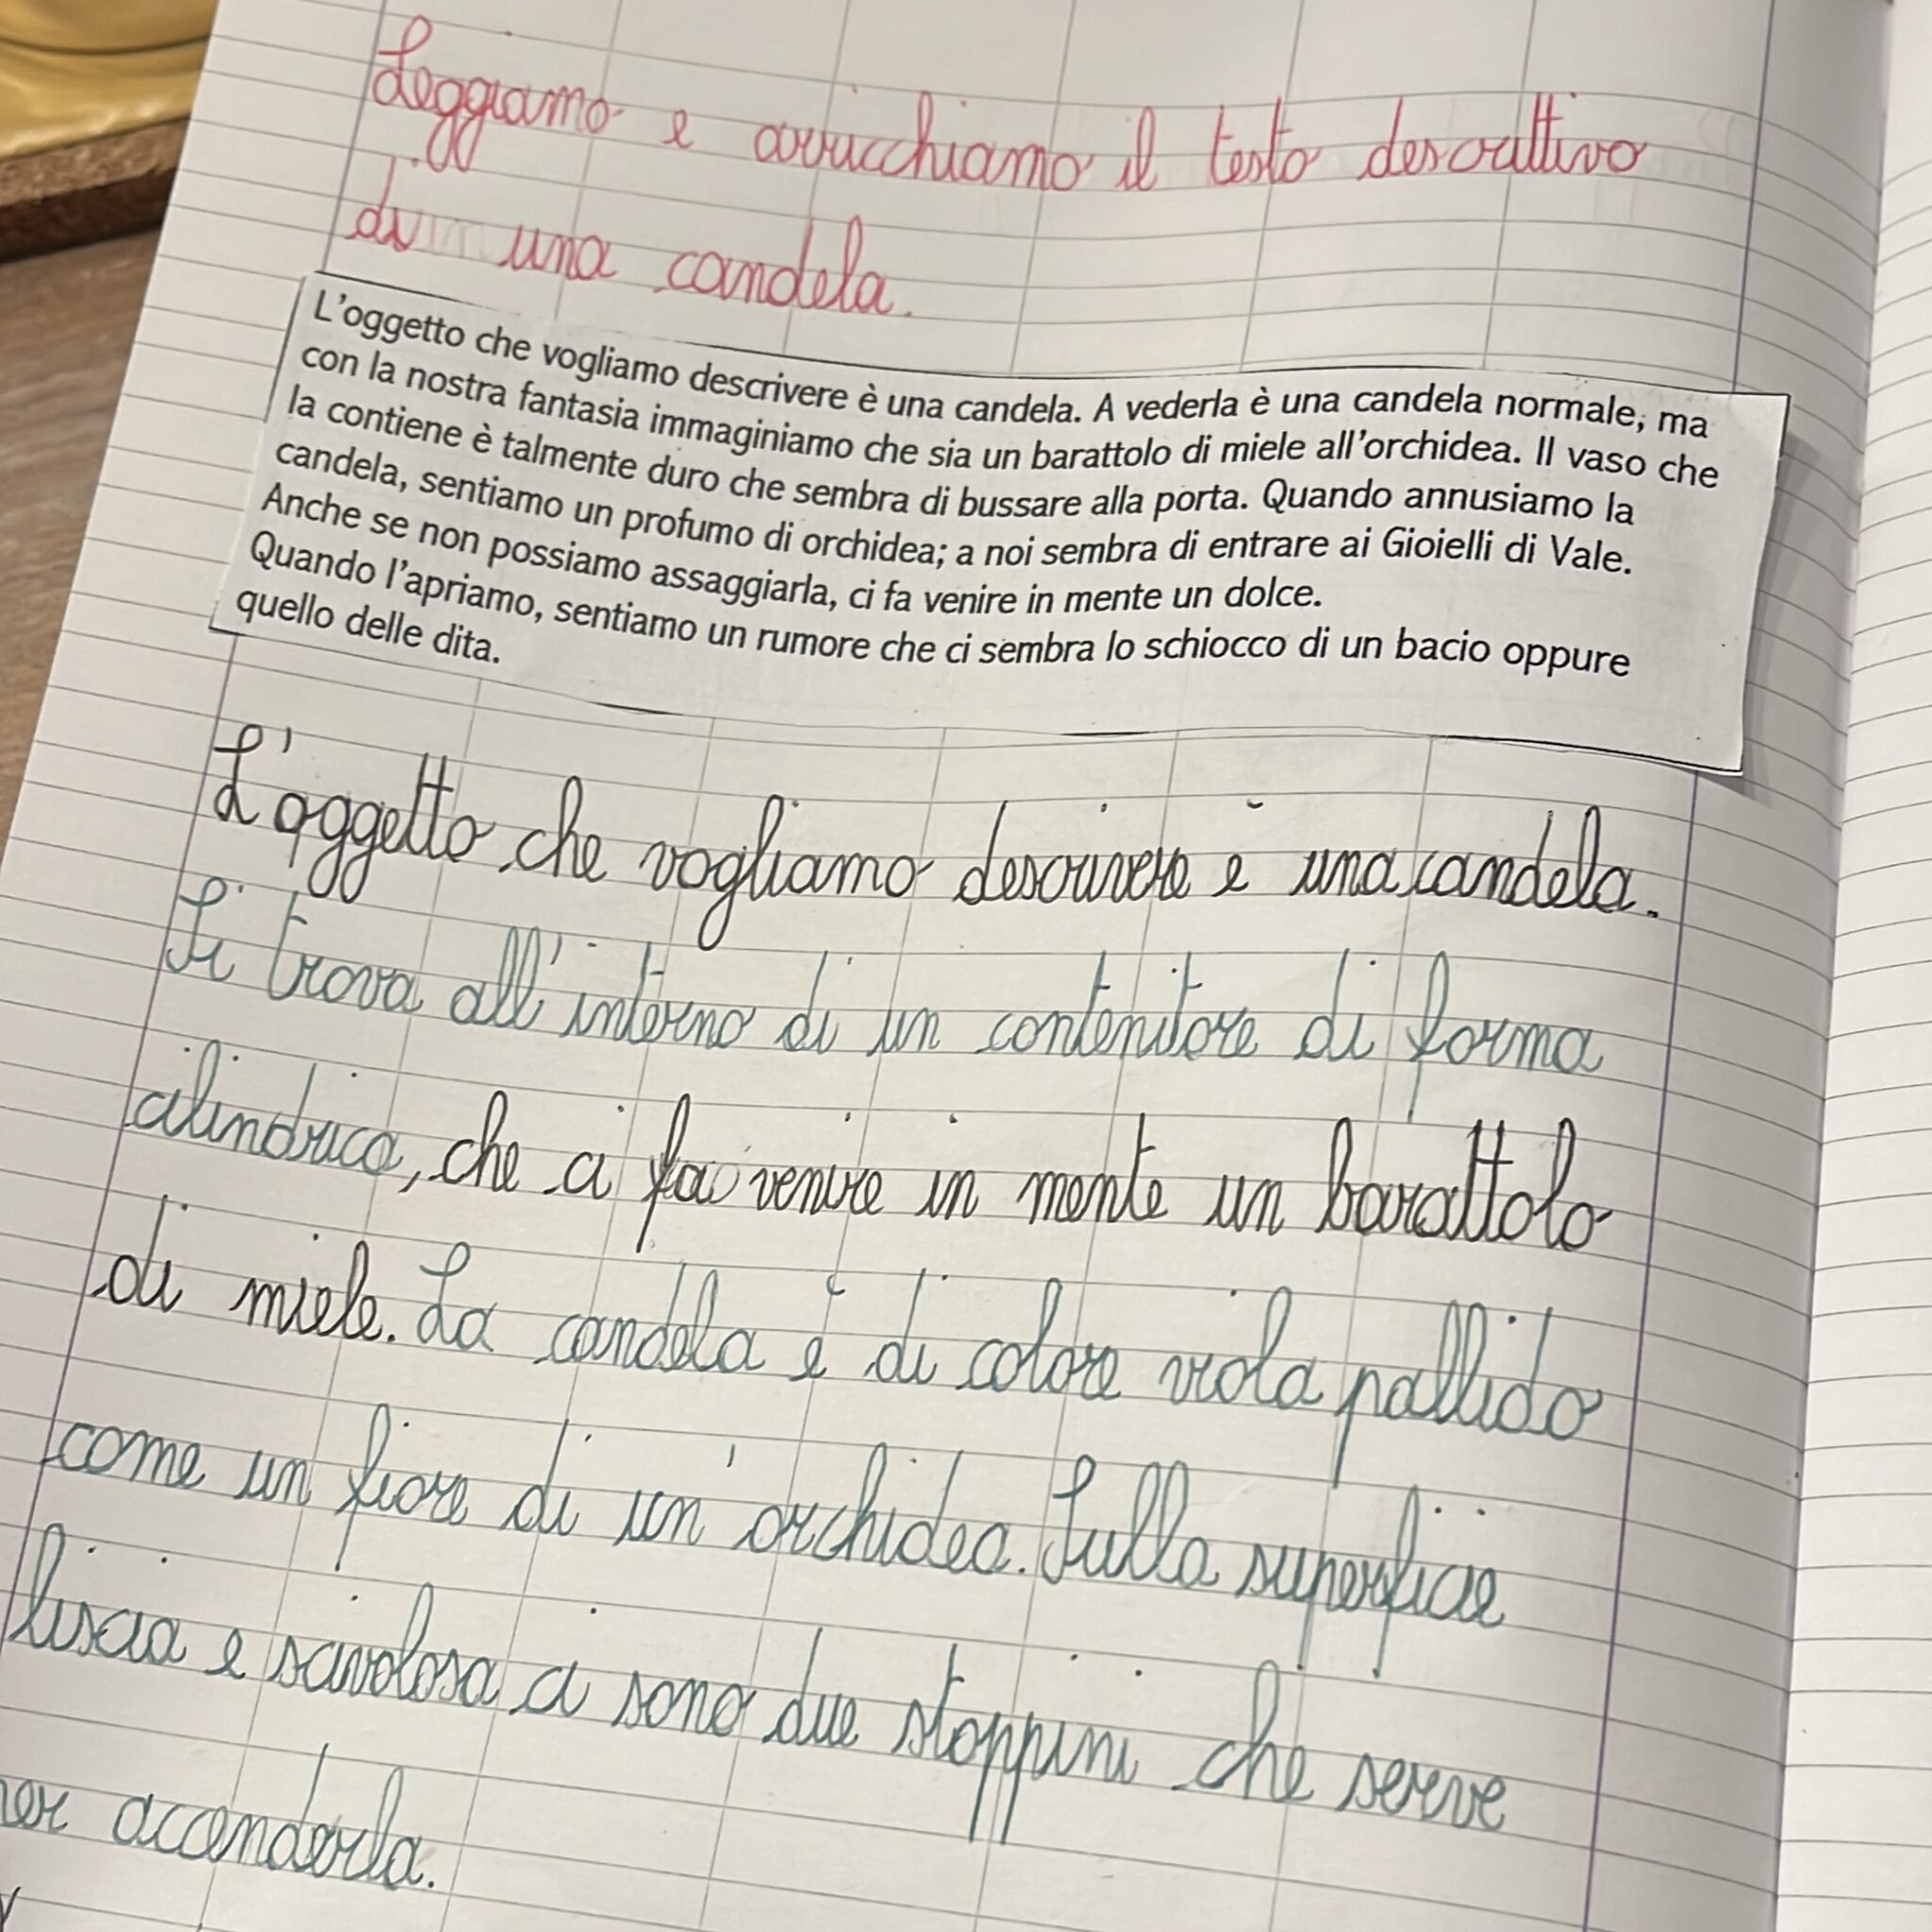 Leggiamo e arricchiamo il testo descrittivo
di una candela.
L'oggetto che vogliamo descrivere è una candela. A vederla è una candela normale, ma
con la nostra fantasia immaginiamo che sia un barattolo di miele all'orchidea. Il vaso che
la contiene è talmente duro che sembra di bussare alla porta. Quando annusiamo la
candela, sentiamo un profumo di orchidea; a noi sembra di entrare ai Gioielli di Vale.
Anche se non possiamo assaggiarla, ci fa venire in mente un dolce.
Quando l'apriamo, sentiamo un rumore che ci sembra lo schiocco di un bacio oppure
quello delle dita.
L'oggetto che vogliamo descrivere è una candela.
Si trova all'interno di un contenitore di forma
cilindrica, che ci fa venire in mente un barattolo
di miele. La candela è di colore viola pallido
come un fiore di un'orchidea. Sulla superficie
liscia e scivolosa ci sono due stoppini che serve
per accenderla.